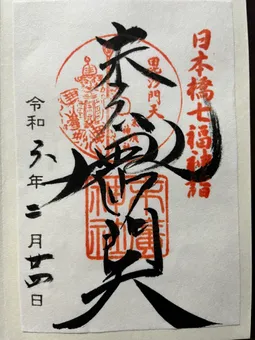 日本橋七福神詣
毘沙門天
末廣神社
令和六年二月廿四日